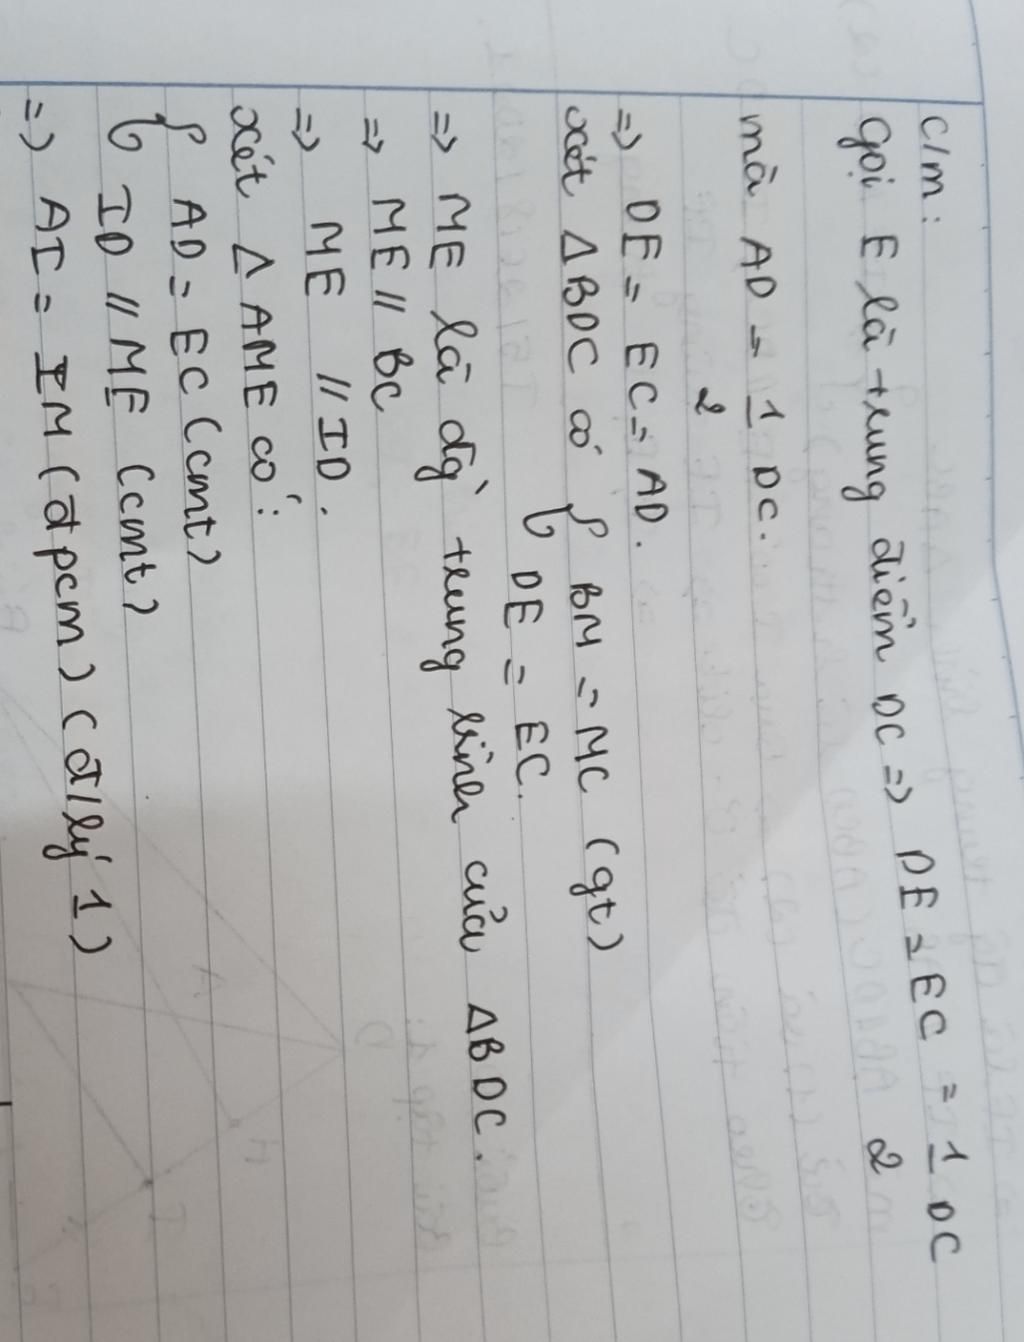 c/m:
Gọi E là trung điểm DC => DE = EC = 1/2 DC
mà AD = 1/2 DC.
=> DE = EC = AD.
xét ΔBDC có { BM = MC (gt)
DE = EC.
=> ME là đg̀ trung bình của ΔBDC.
=> ME // BC
=> ME // ID.
xét Δ AME có:
{ AD = EC (cmt)
ID // ME (cmt)
=> AI = IM (đpcm) (đ/lý 1)